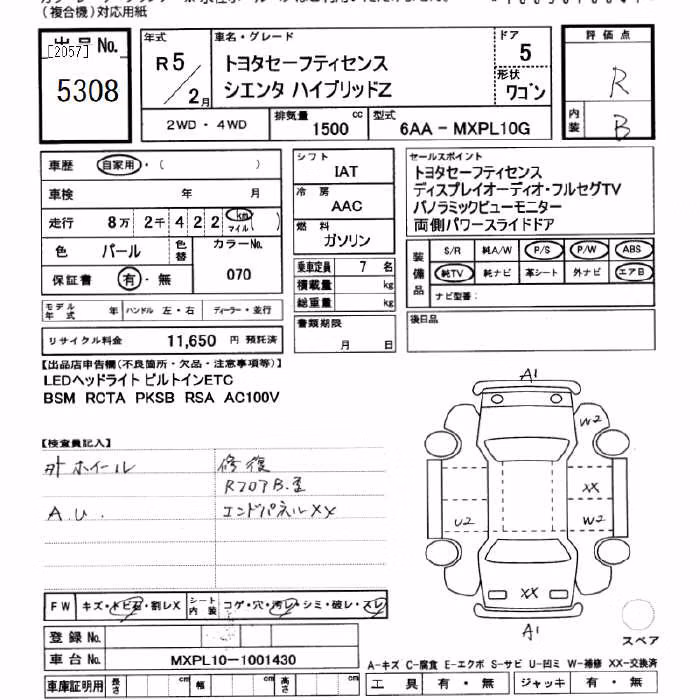 (複合機)対応用紙
出品No.
[2057]
5308
年式
R5/2月
車名・グレード
トヨタセーフティセンス
シエンタ ハイブリッドZ
ドア
5
形状
ワゴン
評価点
R
内装
B
2WD・4WD
排気量
1500 cc
型式
6AA－MXPL10G
車歴
自家用・(
車検 年 月
走行 8万 2千 4 2 2 km マイル ( )
色 パール
色替
カラーNo.
070
保証書 有・無
シフト
IAT
冷房
AAC
燃料
ガソリン
乗車定員 7 名
積載量 kg
総重量 kg
セールスポイント
トヨタセーフティセンス
ディスプレイオーディオ・フルセグTV
パノラミックビューモニター
両側パワースライドドア
装備品
S/R 純A/W P/S P/W ABS
純TV 純ナビ 革シート 外ナビ エアB
ナビ型番:
モデル年式 年 ハンドル 左・右 ディーラー・並行
リサイクル料金 11,650 円 預託済
書類期限
月 日
後日品
【出品店申告欄(不良箇所・欠品・注意事項等)】
LEDヘッドライト ビルトインETC
BSM RCTA PKSB RSA AC100V
【検査員記入】
外ホイール
A.U.
修復
エンドパネルXX
A1
W2
XX
U2
W2
XX
A1
スペア
FW キズ・トビ石・割レX
シート内装 コゲ・穴・汚レ・シミ・破レ・スレ
登録No.
車台No. MXPL10－1001430
A-キズ C-腐食 E-エクボ S-サビ U-凹ミ W-補修 XX-交換済
車庫証明用 長さ cm 幅 cm 高さ cm
工具 有・無 ジャッキ 有・無